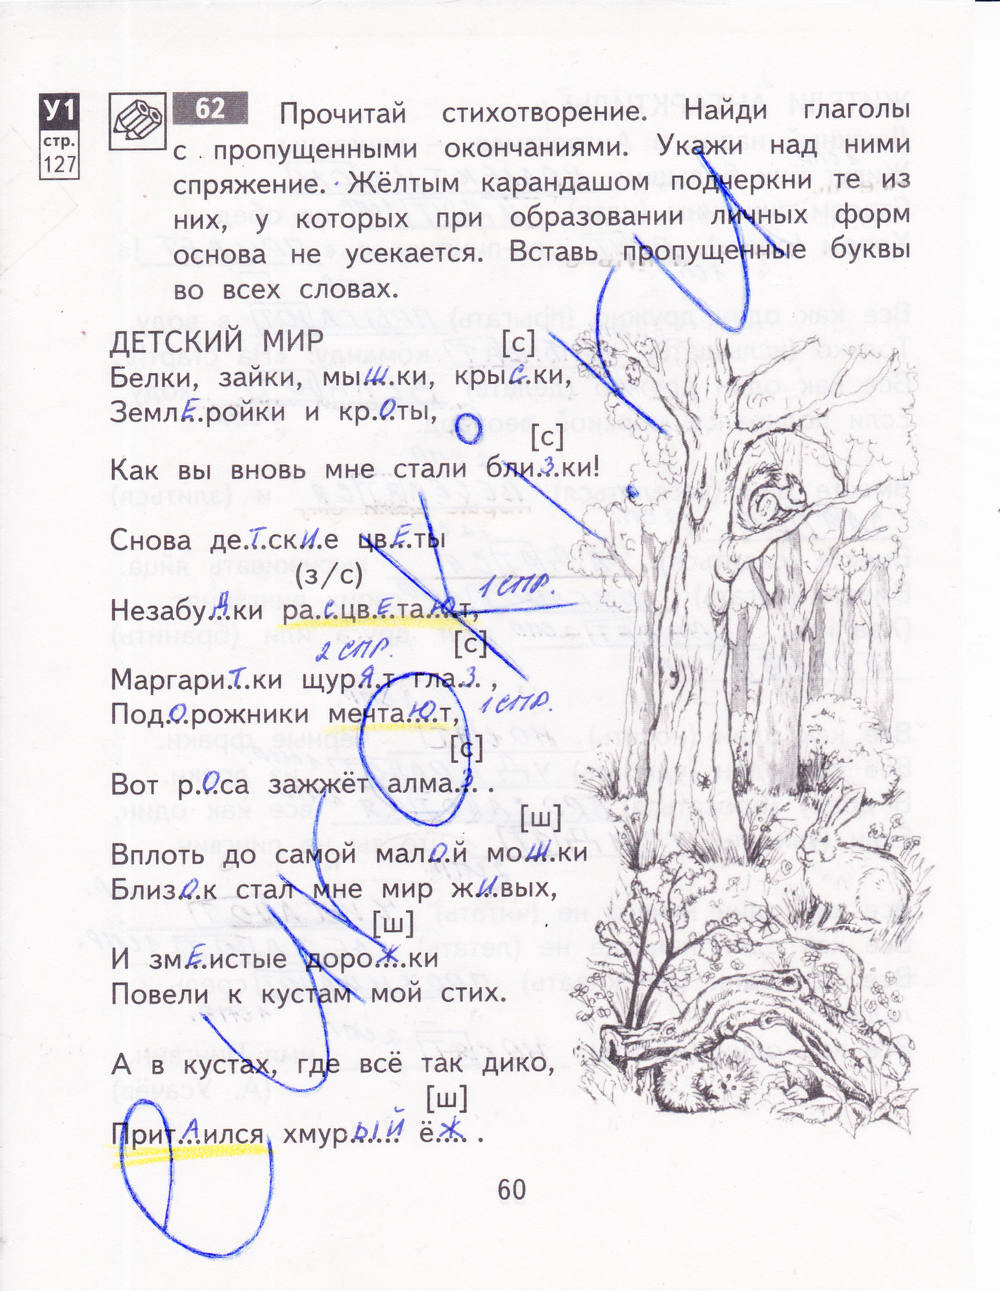 У1
стр.
127
62 Прочитай стихотворение. Найди глаголы
с пропущенными окончаниями. Укажи над ними
спряжение. Жёлтым карандашом подчеркни те из
них, у которых при образовании личных форм
основа не усекается. Вставь пропущенные буквы
во всех словах.
ДЕТСКИЙ МИР [с]
Белки, зайки, мышки, крыски,
ЗемлЕройки и крОты,
[с]
Как вы вновь мне стали близки!
Снова деТскИе цвЕты
(з/с) 1 СПР.
НезабуДки раСцвЕтаЮт,
2 СПР. [с]
МаргариТки щурЯт глаЗ,
ПодОрожники мечтаЮт, 1 СПР.
[с]
Вот рОса зажжёт алмаЗ.
[ш]
Вплоть до самой малОй моШки
БлизОк стал мне мир жИвых,
[ш]
И змЕистые дороЖки
Повели к кустам мой стих.
А в кустах, где всё так дико,
[ш]
ПритАился хмурЫЙ ёЖ.
60